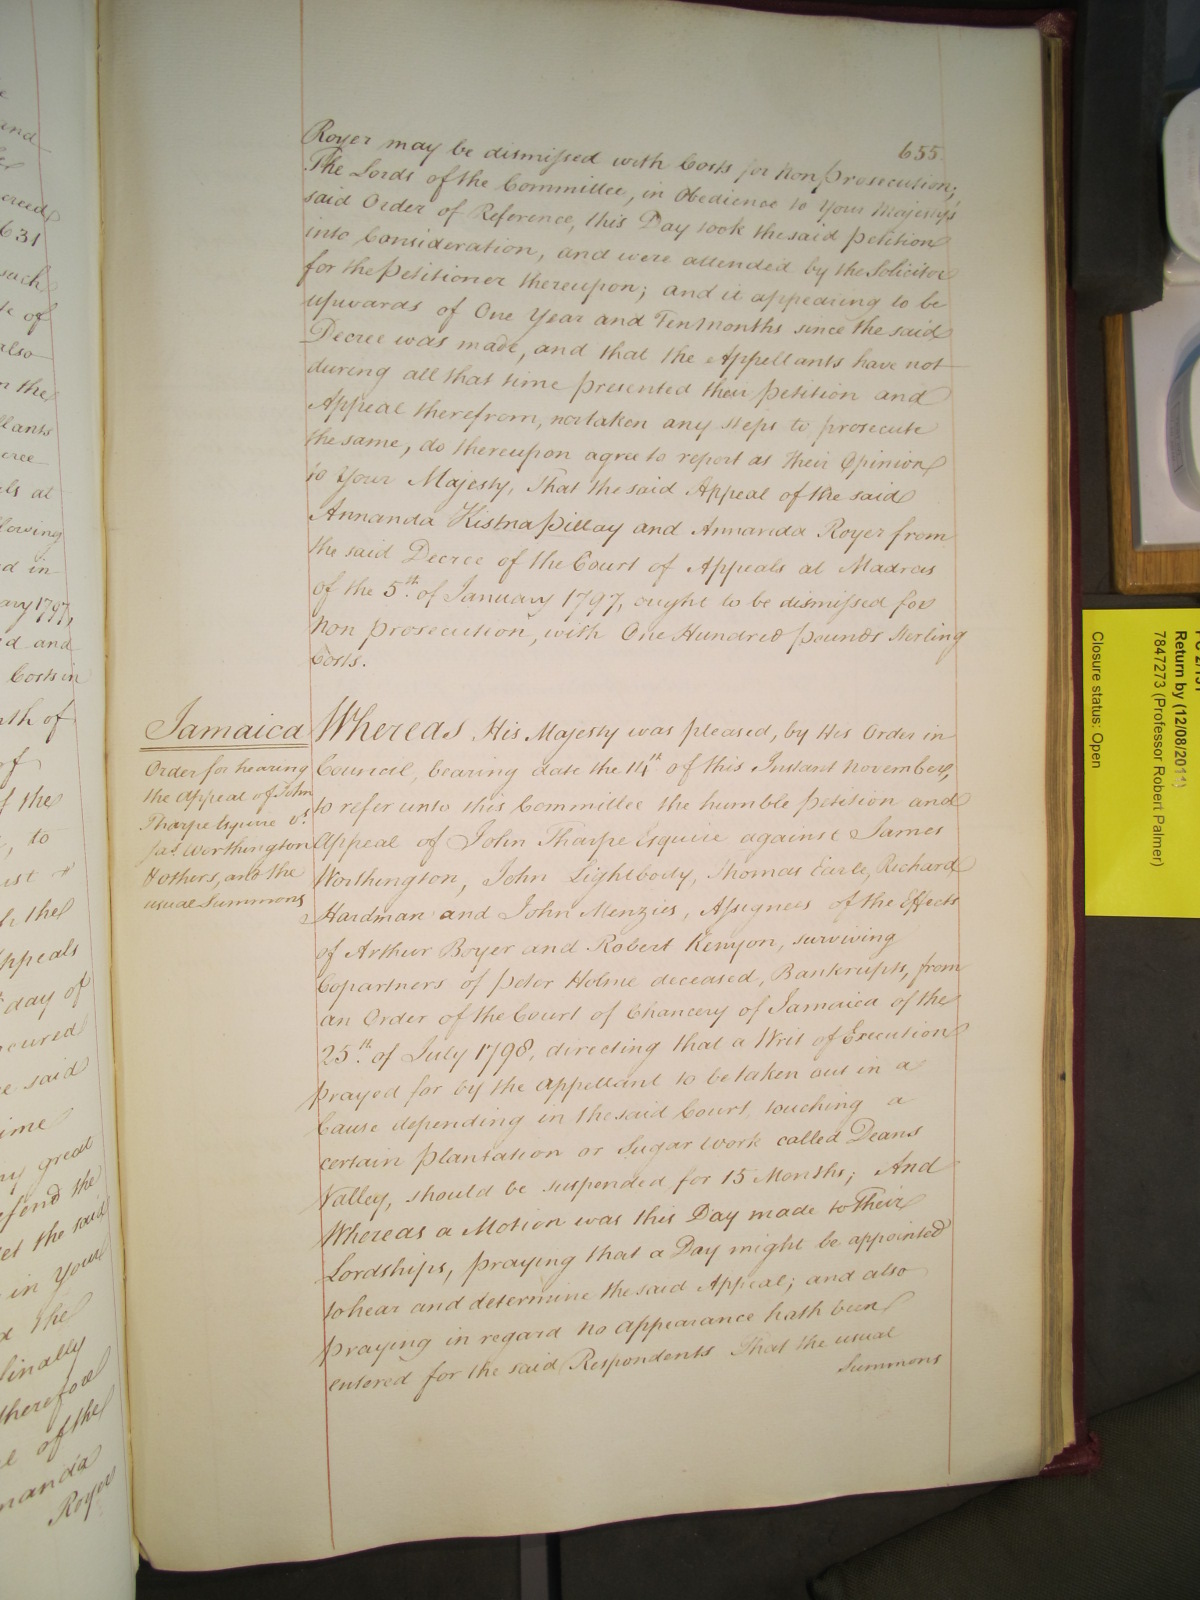 655
Royer may be dismissed with Costs for Non prosecution;
The Lords of the Committee, in Obedience to Your Majesty's
said Order of Reference, this Day took the said petition
into Consideration, and were attended by the Solicitor
for the petitioner thereupon; and it appearing to be
upwards of One Year and Ten Months since the said
Decree was made, and that the Appellants have not
during all that time presented their petition and
Appeal therefrom, nor taken any steps to prosecute
the same, do thereupon agree to report as their Opinion
to Your Majesty, That the said Appeal of the said
Annanda Kistnapillay and Annanda Royer from
the said Decree of the Court of Appeals at Madras
of the 5th. of January 1797, ought to be dismissed for
Non prosecution, with One Hundred pounds Sterling
Costs.
Jamaica
Order for hearing
the Appeal of John
Tharpe Esquire vs.
Jas. Worthington
& others, and the
usual Summons
Whereas His Majesty was pleased, by His Order in
Council, bearing date the 14th of this Instant November,
to refer unto this Committee the humble petition and
Appeal of John Tharpe Esquire against James
Worthington, John Lightbody, Thomas Earle, Richard
Hardman and John Menzies, Assignees of the Effects
of Arthur Boyer and Robert Kenyon, surviving
Copartners of peter Holme deceased, Bankrupts, from
an Order of the Court of Chancery of Jamaica of the
25th. of July 1798, directing that a Writ of Execution
prayed for by the Appellant to be taken out in a
Cause depending in the said Court, touching a
certain plantation or Sugar work called Deans
Valley, should be suspended for 15 Months; And
Whereas a Motion was this Day made to Their
Lordships, praying that a Day might be appointed
to hear and determine the said Appeal; and also
praying in regard no appearance hath been
entered for the said Respondents That the usual
Summons
and
631
such
of
also
the
ants
als at
lowing
d in
ary 1797,
d and
Costs in
th of
of
f the
, to
h the
ppeals
day of
cured
said
ime
ny great
the
the said
in your
the
finally
therefore
of the
nanda
Royer
Return by (12/08/2011)
7847273 (Professor Robert Palmer)
Closure status: Open